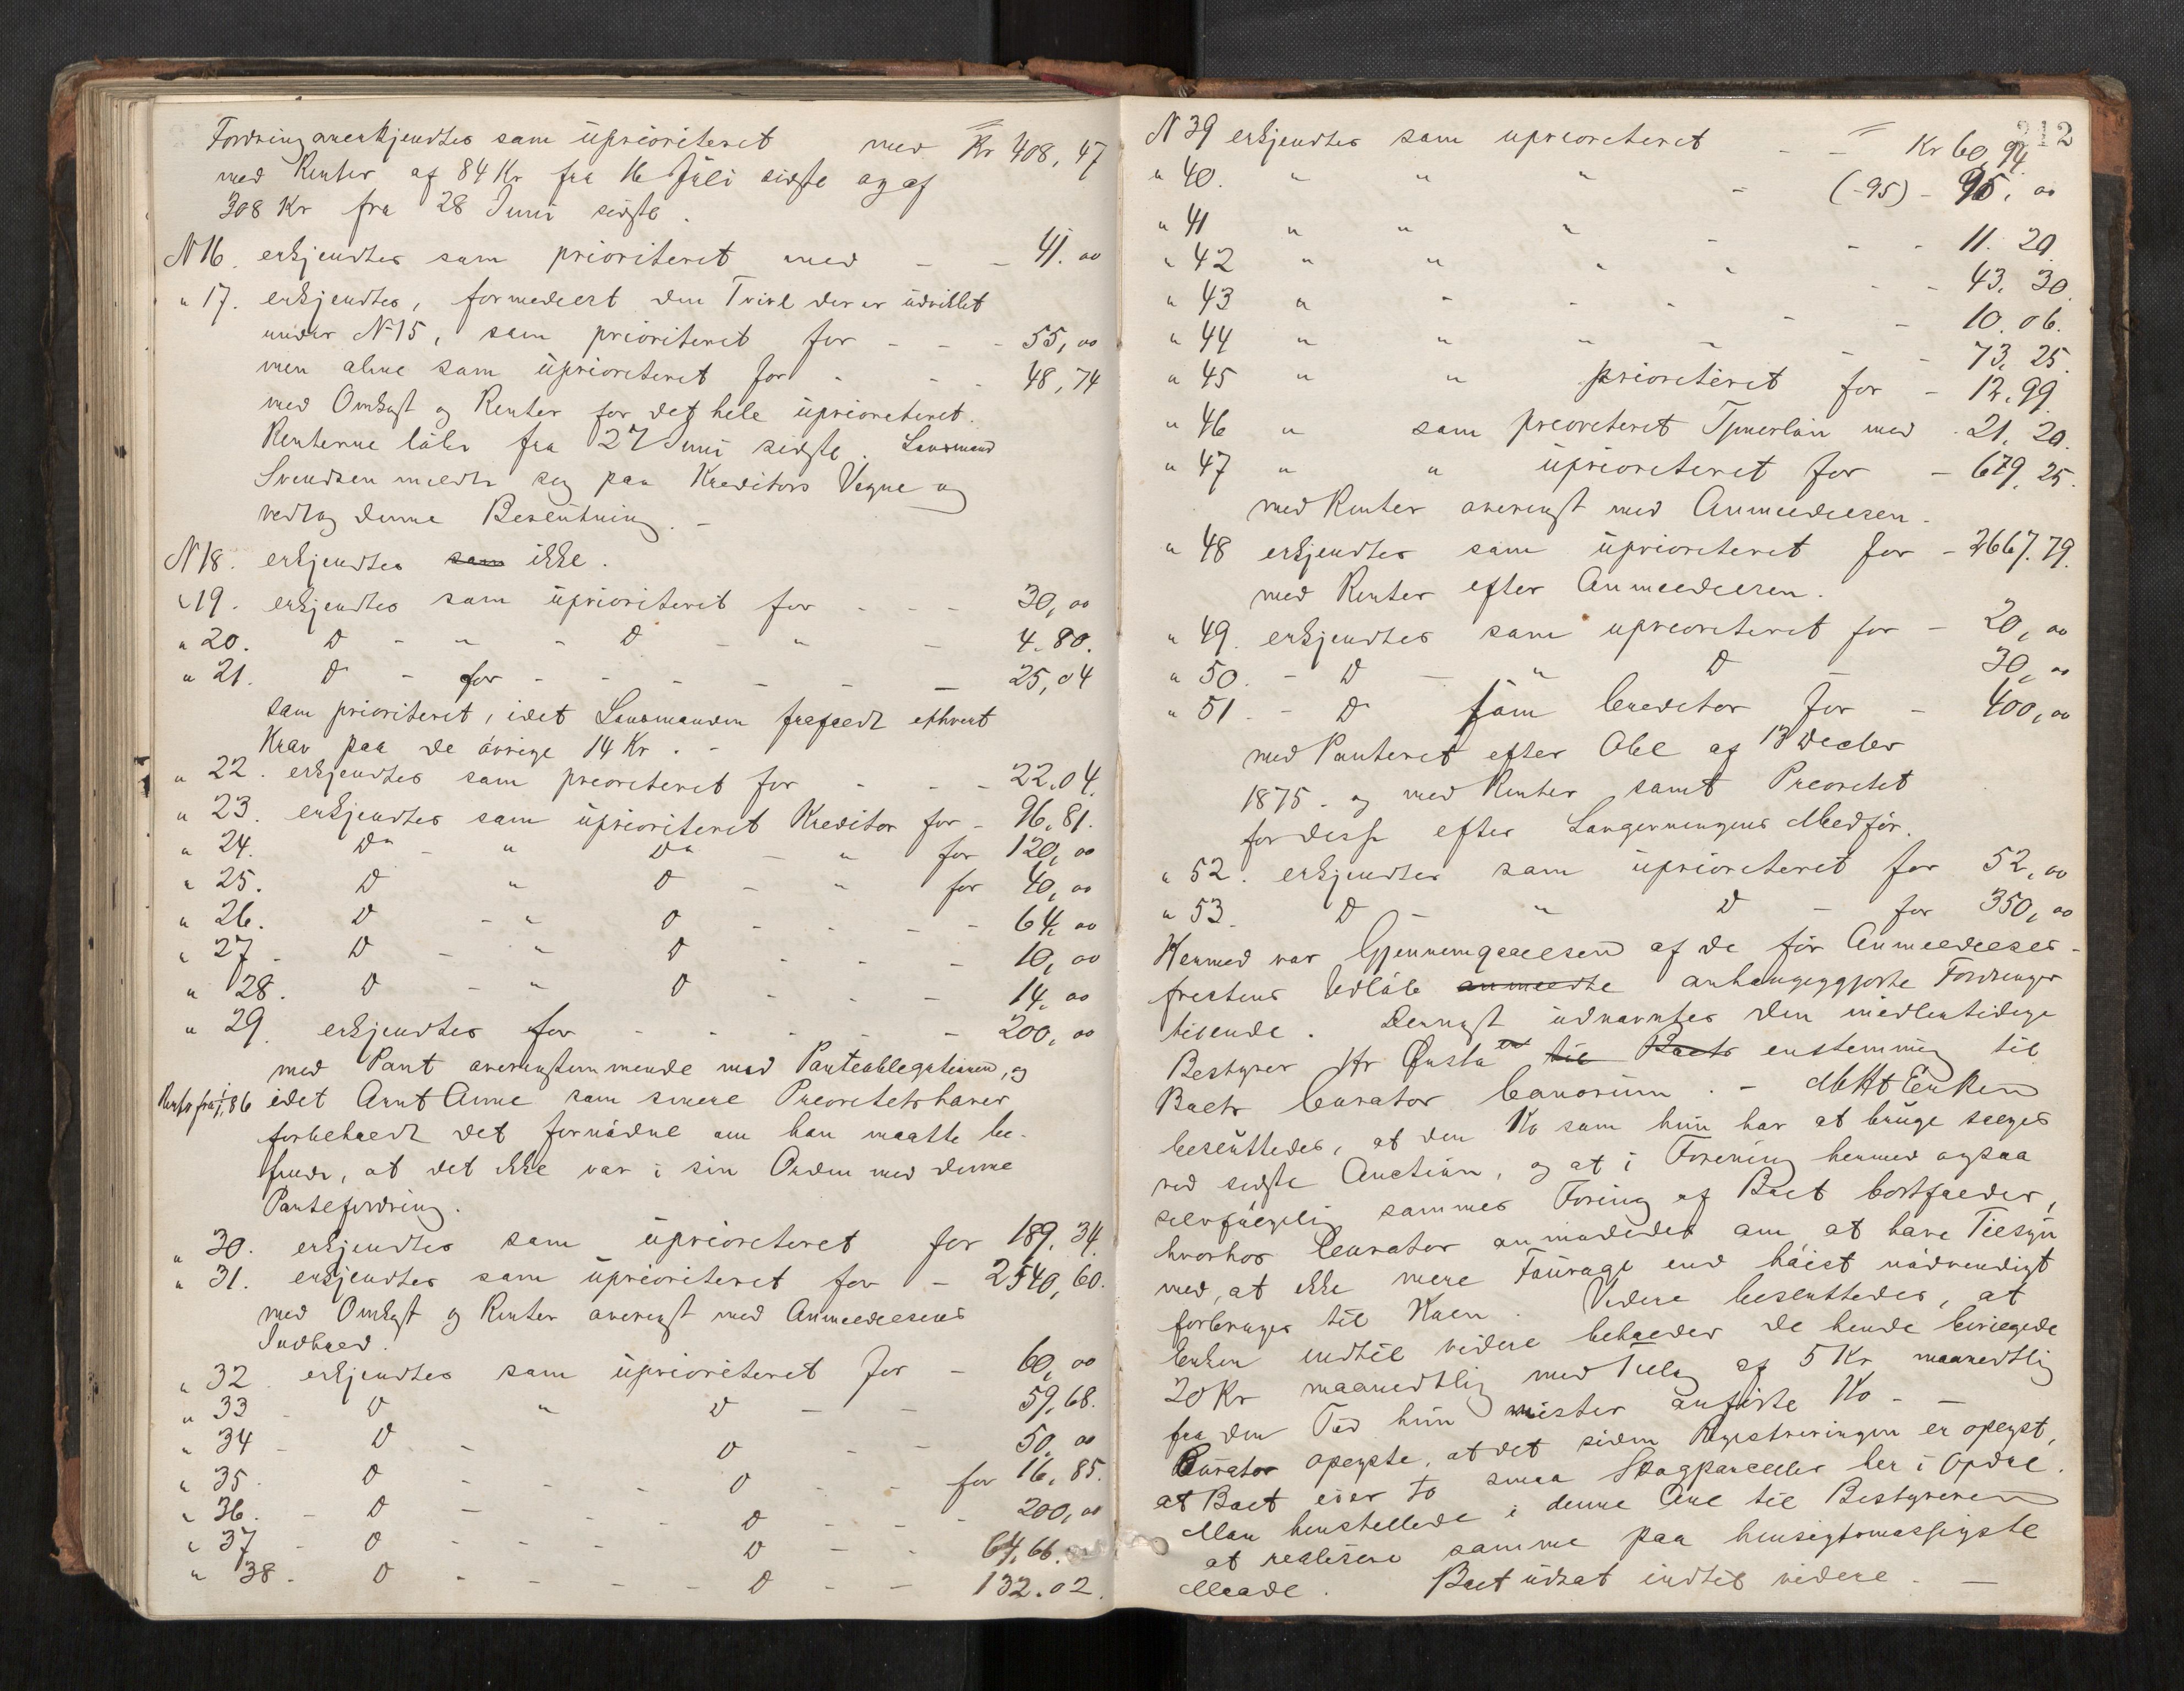 Fordring anerkjendtes som uprioriteret med Kr 408,47
med Renter af 84 Kr fra 16 Juli sidste og af
308 Kr fra 28 Juni sidste.
N 16. erkjendtes som prioriteret med - - 41.00
" 17. erkjendtes, formedelst den Tvivl der er udviklet
under N 15, som prioriteret for - - - 55,00
men alene som uprioriteret for - - - 48,74
med Omkost og Renter for det hele uprioriteret.
Renterne løber fra 27 Juni sidste. Lensmand
Svendsen meldte sig paa Kreditors Vegne og
vedtog denne Beslutning. -
N 18. erkjendtes som ikke.
" 19. erkjendtes som uprioriteret for - - - 30,00
" 20. D - " - D - " - 4.80.
" 21. D - for - - - - - 25,04
som prioriteret, idet Lensmanden frafaldt ethvert
Krav paa de øvrige 14 Kr. -
" 22. erkjendtes som prioriteret for - - - 22.04.
" 23. erkjendtes som uprioriteret Kreditor for - 96.81.
" 24. Do - " Do - " for 120,00
" 25. D " D - " for 40,00
" 26. D - " D - - - - 64,00
" 27 - D - " D - - - 10,00
" 28. D - " D - - - 14.00
" 29. erkjendtes for - - - - - 200,00
med Pant overenstemmende med Panteobligationen, og
Renter fra 86 idet Arnt Aune som senere Prioritetshaver
forbeholdt det fornødne om han maatte be-
finde, at det ikke var i sin Orden med denne
Pantefordring.
" 30. erkjendtes som uprioriteret for 189.34.
" 31. erkjendtes som uprioriteret for - 2540,60.
med Omkost og Renter overenst med Anmeldelsens
Indhold.
" 32. erkjendtes som uprioriteret for - 60,00
" 33 - D " D - - 59,68.
" 34 - D - D - - 50.00
" 35. D - D - - for 16,85.
" 36. - D - - - D - - - 200,00
" 37 - D - - - D - - 64,66.
" 38. D - - - - D - - 132.02.
212
N 39 erkjendtes som uprioriteret - - Kr 60,94
" 40. " " " - (-95) - 95,00
" 41 " " " - - - 11.20
" 42 " " " " - - 43,30
" 43 " - - - - - 10.06.
" 44 " " " - - 73,25
" 45 " " prioriteret for - 12.99
" 46 " som prioriteret med - 21,20.
" 47 " " uprioriteret for - 679,25.
med Renter overenst med Anmeldelsen.
" 48 erkjendtes som uprioriteret for - 2667.79.
med Renter efter Anmeldelsen.
" 49. erkjendtes som uprioriteret for - 20,00
" 50. - D - " D - 30,00
" 51 - D som Creditor for - 400,00
med Panteret efter Obl af 13 Decbr
1875. og med Renter samt Prioritet
for disse efter Lovgivningens Medfør.
" 52. erkjendtes som uprioriteret for 52,00
" 53. D - " D - for 350,00
Hermed var Gjennemgaaelsen af de før Anmeldelses-
fristens Udløb anmeldte anhængiggjorte Fordringer
tilende. Dernæst udnævntes den midlertidige
Bestyrer Hr til Boets enstemmig til
Boets Curator bonorum. - Mht Enken
besluttedes, at den Ko som hun har at bruge sælges
ved sidste Auction, og at i Forening hermed ogsaa
selvfølgelig sammes Foring af Boet bortfalder,
hvorhos Curator anmodedes om, at have Tilsyn
med, at ikke mere Fourage end høist nødvendigt
forbruges til Koen. Videre besluttedes, at
Enken indtil videre beholder de hende bevilgede
20 Kr maanedtlig med Tillæg af 5 Kr maanedtlig
fra den Tid hun mister anførte Ko. -
Curator oplyste, at det siden Registreringen er oplyst,
at Boet eier to smaa Skogparceller her i Opdal.
Man henstillede i denne Anl til Bestyreren
at realisere samme paa hensigtsmæssigste
Maade. Boet udsat indtil videre. -